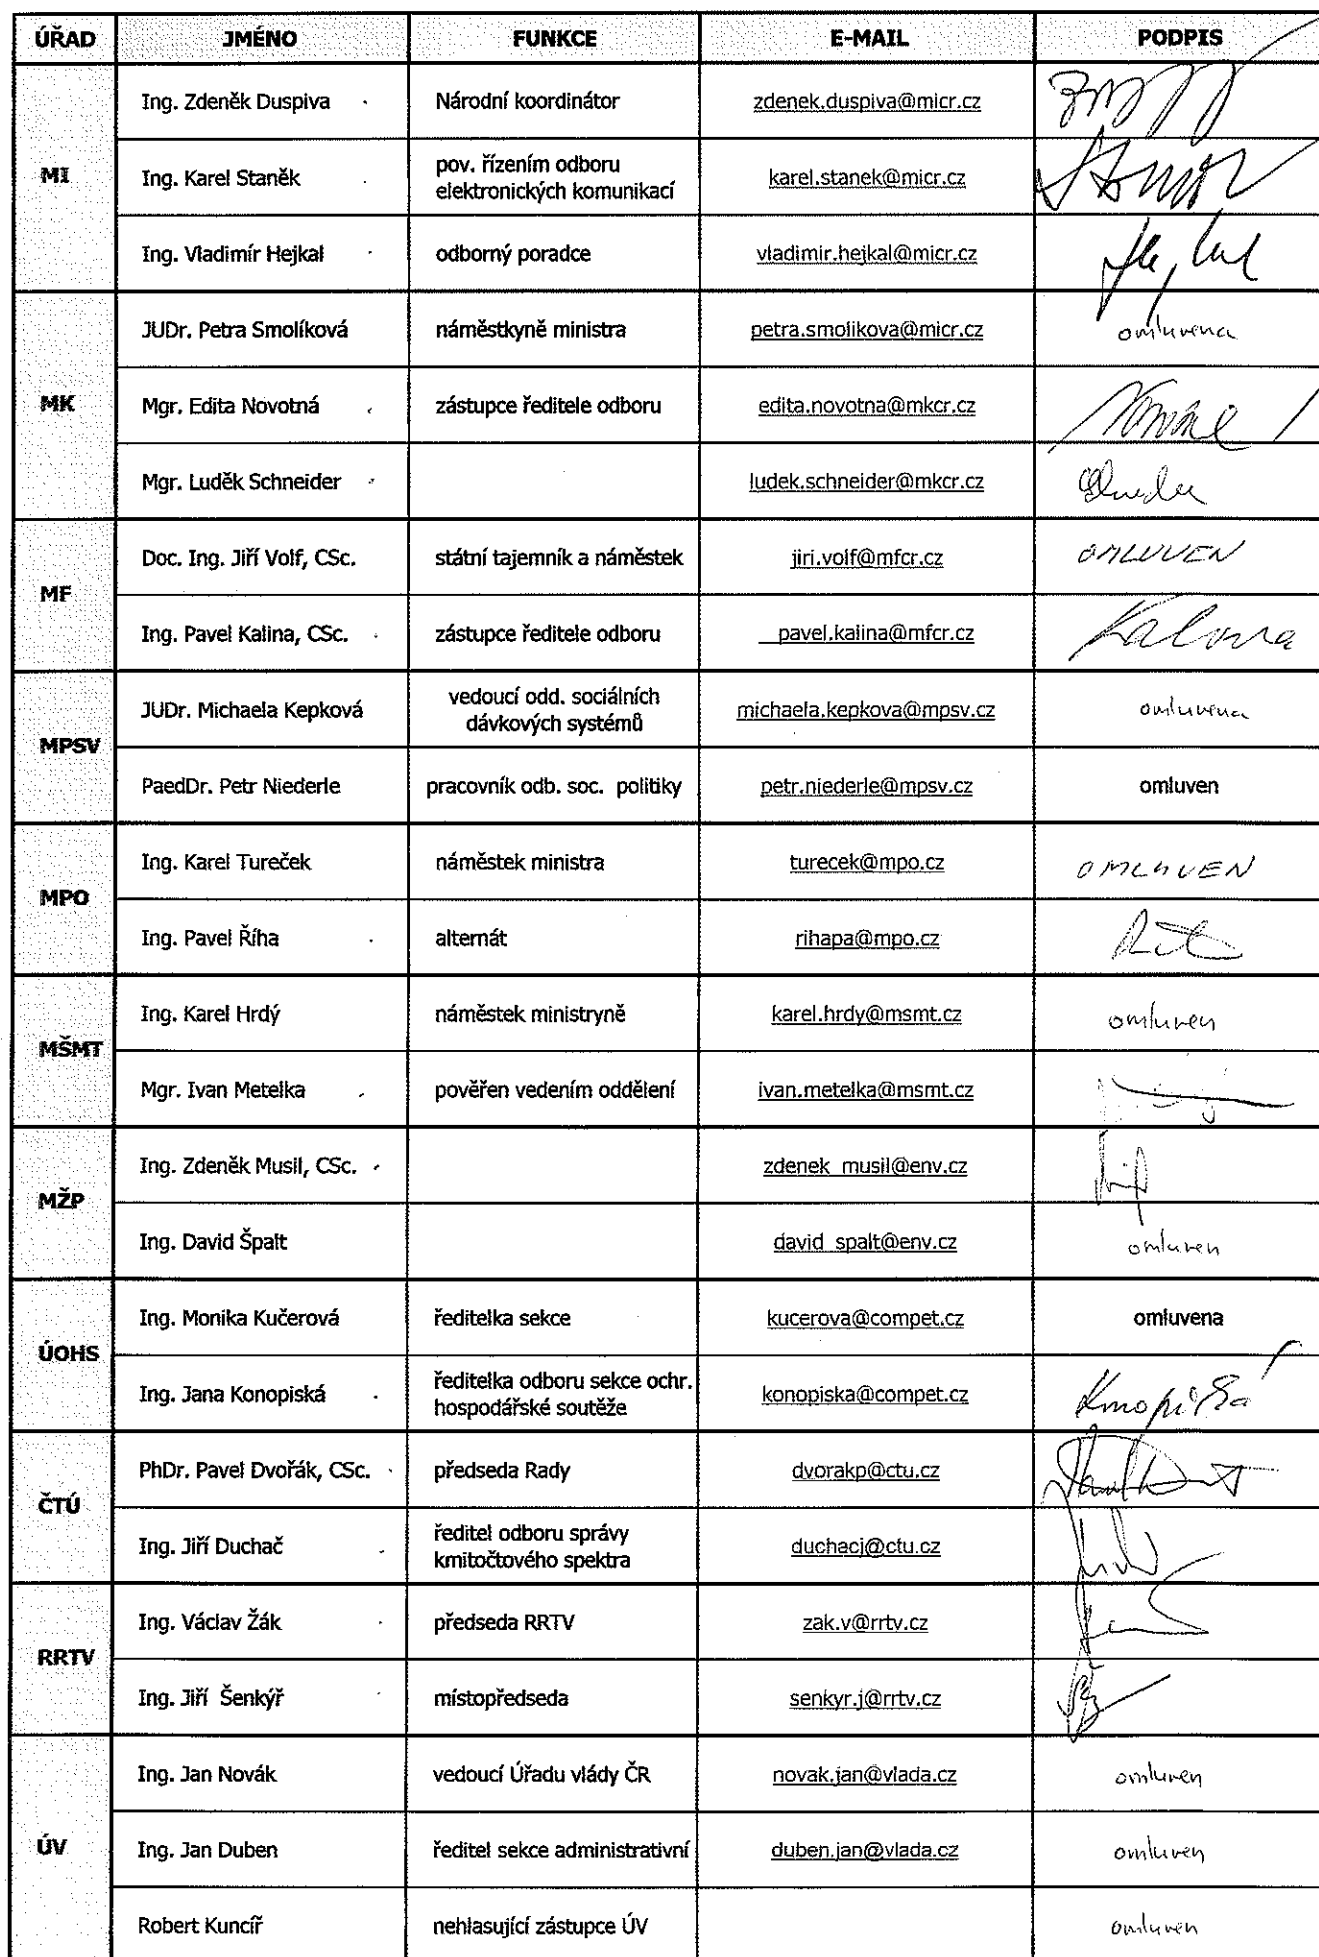 ÚŘAD JMÉNO FUNKCE E-MAIL PODPIS
MI
Ing. Zdeněk Duspiva Národní koordinátor zdenek.duspiva@micr.cz
Ing. Karel Staněk pov. řízením odboru
elektronických komunikací karel.stanek@micr.cz
Ing. Vladimír Hejkal odborný poradce vladimir.hejkal@micr.cz
MK
JUDr. Petra Smolíková náměstkyně ministra petra.smolikova@micr.cz omluvena
Mgr. Edita Novotná zástupce ředitele odboru edita.novotna@mkcr.cz
Mgr. Luděk Schneider ludek.schneider@mkcr.cz
MF
Doc. Ing. Jiří Volf, CSc. státní tajemník a náměstek jiri.volf@mfcr.cz OMLUVEN
Ing. Pavel Kalina, CSc. zástupce ředitele odboru pavel.kalina@mfcr.cz Kalina
MPSV
JUDr. Michaela Kepková vedoucí odd. sociálních
dávkových systémů michaela.kepkova@mpsv.cz omluvena
PaedDr. Petr Niederle pracovník odb. soc. politiky petr.niederle@mpsv.cz omluven
MPO
Ing. Karel Tureček náměstek ministra turecek@mpo.cz OMLUVEN
Ing. Pavel Říha alternát rihapa@mpo.cz
MŠMT
Ing. Karel Hrdý náměstek ministryně karel.hrdy@msmt.cz omluven
Mgr. Ivan Metelka pověřen vedením oddělení ivan.metelka@msmt.cz
MŽP
Ing. Zdeněk Musil, CSc. zdenek_musil@env.cz
Ing. David Špalt david_spalt@env.cz omluven
ÚOHS
Ing. Monika Kučerová ředitelka sekce kucerova@compet.cz omluvena
Ing. Jana Konopiská ředitelka odboru sekce ochr.
hospodářské soutěže konopiska@compet.cz Konopiská
ČTÚ
PhDr. Pavel Dvořák, CSc. předseda Rady dvorakp@ctu.cz
Ing. Jiří Duchač ředitel odboru správy
kmitočtového spektra duchacj@ctu.cz
RRTV
Ing. Václav Žák předseda RRTV zak.v@rrtv.cz
Ing. Jiří Šenkýř místopředseda senkyr.j@rrtv.cz
ÚV
Ing. Jan Novák vedoucí Úřadu vlády ČR novak.jan@vlada.cz omluven
Ing. Jan Duben ředitel sekce administrativní duben.jan@vlada.cz omluven
Robert Kuncíř nehlasující zástupce ÚV omluven